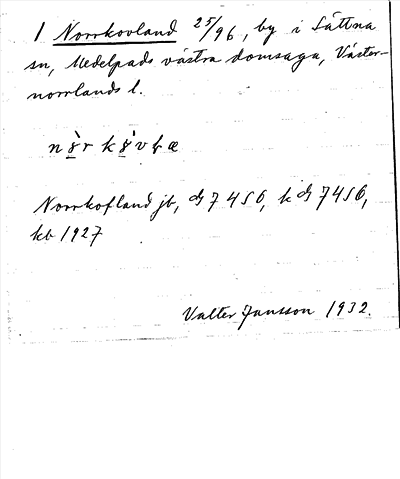 1 Norrkovland 25/96, by i Sättna
sn, Medelpads västra domsaga, Väster-
norrlands l.
Norrkofland jb, dζ 7456, k dζ 7456,
kb 1927
Valter Jansson 1932.